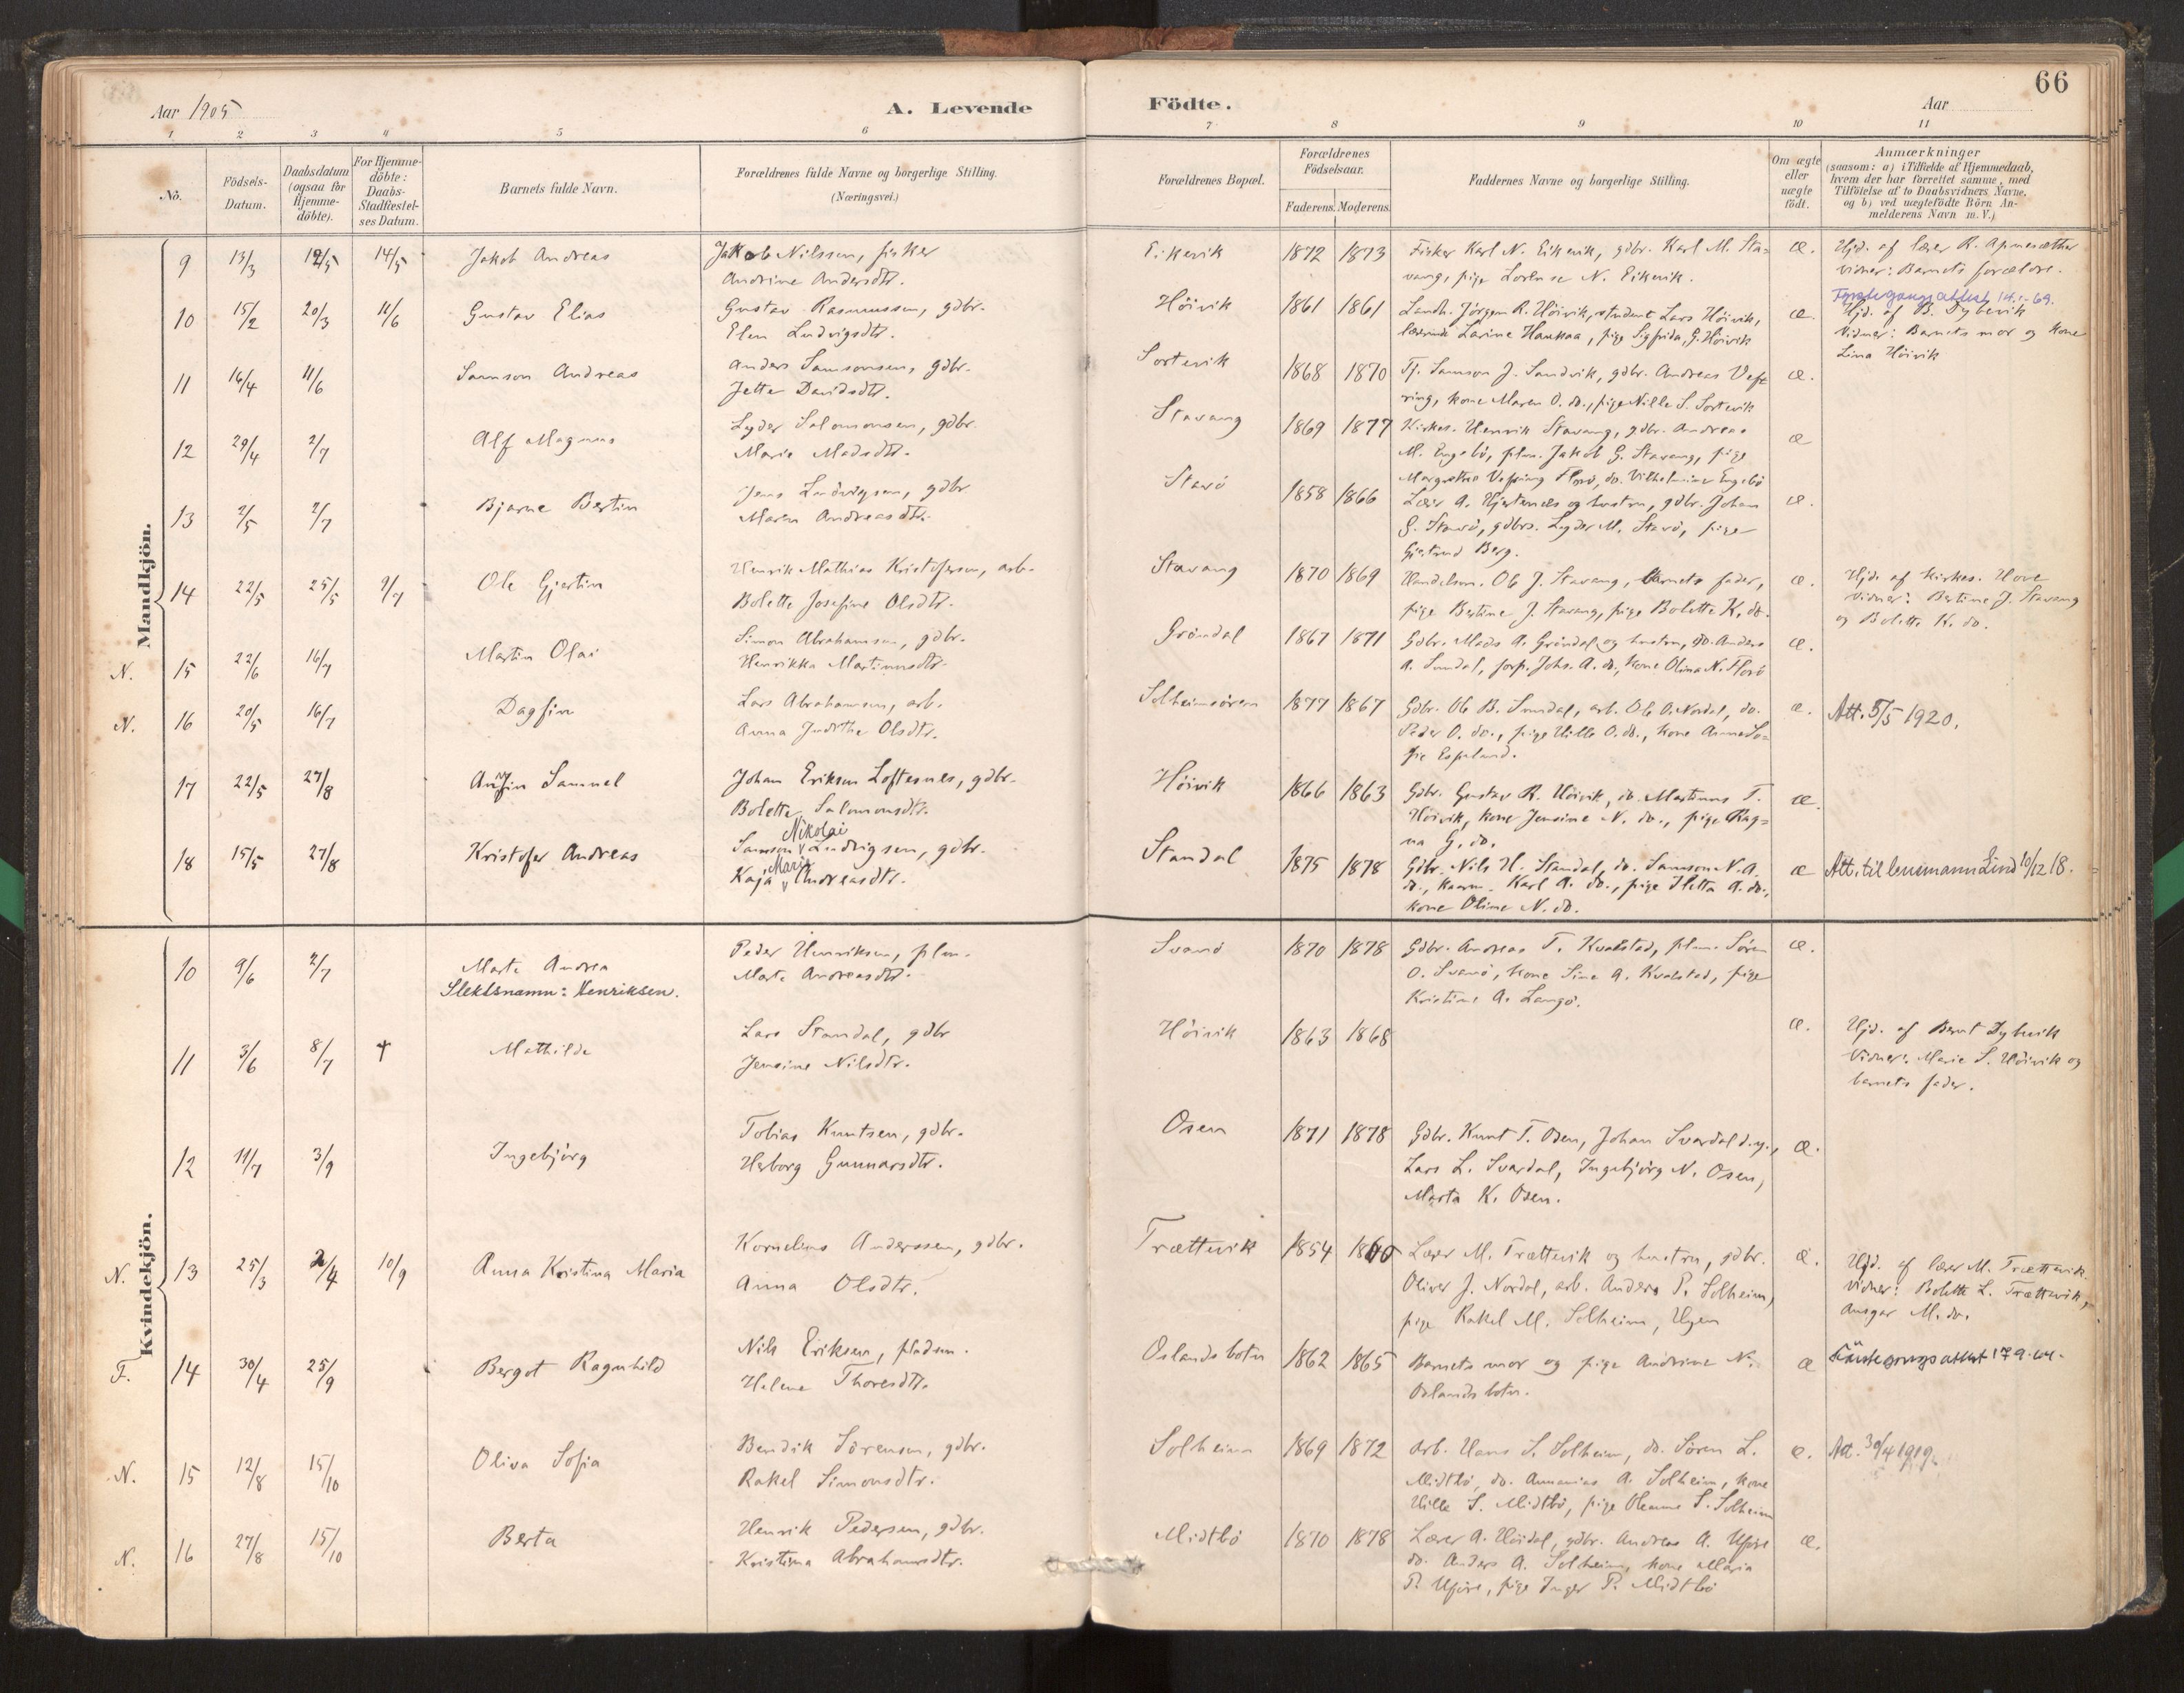 66
Aar 1905
A. Levende
Födte.
Aar
1 2 3 4 5 6 7 8 9 10 11
No.
Födsels-Datum.
Daabsdatum (ogsaa for Hjemme-döbte).
For Hjemme-döbte: Daabs-Stadfæstel-ses Datum.
Barnets fulde Navn.
Forældrenes fulde Navne og borgerlige Stilling.
(Næringsvei.)
Forældrenes Bopæl.
Forældrenes Födselsaar.
Faderens. Moderens.
Faddernes Navne og borgerlige Stilling.
Om ægte eller uægte födt.
Anmærkninger
(saasom: a) i Tilfælde af Hjemmedaab, hvem der har forrettet samme, med Tilföielse af to Daabsvidners Navne, og b) ved uægtefödte Börn Anmelderens Navn m. V.)
Mandkjön.
9 13/3 14/5 Jakob Andreas
Jakob Nilssen, fisker
Andrine Andersdtr.
Eikevik 1872 1873
Fisker Karl N. Eikevik, gdbr. Karl M. Sta-
vang, pige Lorense N. Eikevik.
æ.
Hjd. af lærer R. Apnesæther
Vidner: Barnets forældre.
10 15/2 20/3 11/6 Gustav Elias
Gustav Rasmussen, gdbr.
Elen Ludvigsdtr.
Höivik 1861 1861
Landh. Jörgen R. Höivik, student Lars Höivik,
lærerinde Larine Haukaa, pige Sigfrida G. Höivik
æ.
Förstegangsattest 14.1-69.
Hjd. af B. Dybevik
Vidner: Barnets mor og kone
Lina Höivik
11 16/4 11/6 Samson Andreas
Anders Samsonsen, gdbr.
Jette Davidsdtr.
Sortevik 1868 1870
Fj. Samson J. Sandvik, gdbr. Andreas Vef-
ring, kone Maren O. do., pige Nille S. Sortevik
æ.
12 29/4 2/7 Alf Magnus
Lyder Salomonsen, gdbr.
Marie Madsdtr.
Stavang 1869 1877
Kirkes. Henrik Stavang, gdbr. Andreas
M. Engebö, plm. Jakob G. Stavang, pige
Margrethe Vefring Florö, do. Vilhelmine Engebö
æ
13 2/5 2/7 Bjarne Bertin
Jens Ludvigsen, gdbr
Maren Andreasdtr.
Stavö 1858 1866
Lærer A. Hjertenæs og hustru, gdbr. Johan
G. Stavö, gdbrs. Lyder M. Stavö, pige
Gjertrud Berg.
æ.
14 22/5 25/5 9/7 Ole Gjertin
Henrik Mathias Kristofersen, arb.
Bolette Josefine Olsdtr.
Stavang 1870 1869
Handelsm. Ole J. Stavang, barnets fader,
pige Bertine J. Stavang, pige Bolette K. do.
æ.
Hjd. af kirkes. Hove
Vidner: Bertine J. Stavang
og Bolette K. do.
N. 15 22/6 16/7 Martin Olai
Simon Abrahamsen, gdbr.
Henrikka Martinusdtr.
Gröndal 1867 1871
Gdbr. Mads A. Gröndal og hustru, do. Anders
A. Sundal, forp. Johs. A. do., kone Olina N. Florö
æ.
N. 16 20/5 16/7 Dagfin
Lars Abrahamsen, arb.
Anna Judithe Olsdtr.
Solheimsören 1877 1867
Gdbr. Ole B. Sundal, arb. Ole O. Nordal, do.
Peder O. do., pige Hille O. do., kone Anne So-
fie Espeland.
æ.
Att. 5/5 1920.
17 22/5 27/8 Anfin Samuel
Johan Eriksen Loftesnes, gdbr.
Bolette Salomonsdtr.
Höivik 1866 1863
Gdbr. Gustav R. Höivik, do. Martinus T.
Höivik, kone Jensine N. do., pige Rag-
na G. do.
æ.
18 15/5 27/8 Kristofer Andreas
Samson Nikolai Ludvigsen, gdbr.
Kaja Marie Andreasdtr.
Standal 1875 1878
Gdbr. Nils H. Standal, do. Samson N. A.
do., Karl A. do., pige Hetta A. do.,
kone Oline N. do.
æ
Att. til lensmann Lind 10/12 18.
Kvindekjön.
10 9/6 2/7 Marta Andrea
Slektsnamn: Henriksen.
Peder Henriksen, plm.
Marta Andreasdtr.
Svanö 1870 1878
Gdbr. Andreas T. Kvalstad, plm. Sören
O. Svanö, kone Sina A. Kvalstad, pige
Kristine A. Langö.
æ.
11 3/6 8/7 † Mathilde
Lars Standal, gdbr
Jensine Nilsdtr.
Höivik 1863 1868
æ.
Hjd. af Bernt Dybevik
Vidner: Marie S. Höivik og
barnets fader.
12 11/7 3/9 Ingebjörg
Tobias Knutsen, gdbr.
Herborg Gunnarsdtr.
Osen 1871 1878
Gdbr. Knut T. Osen, Johan Svardal d.y.,
Lars L. Svardal, Ingebjörg N. Osen,
Marta K. Osen.
æ.
N. 13 25/3 2/4 10/9 Anna Kristina Maria
Kornelius Anderssen, gdbr.
Anna Olsdtr.
Trættevik 1854 1860
Lærer M. Trættevik og hustru, gdbr.
Oliver J. Nordal, arb. Anders P. Solheim,
pige Rakel M. Solheim, Hgen
æ.
Hjd. af lærer M. Trættevik.
Vidner: Bolette L. Trættevik,
Ansgar M. do.
F. 14 30/4 25/9 Bergot Ragnhild
Nils Eriksen, pladsm.
Helene Thoresdtr.
Oslandsbotn 1862 1865
Barnets mor og pige Andrine N.
Oslandsbotn.
æ
Förstegangsattest 17.9.64.
N. 15 12/8 15/10 Oliva Sofia
Bendik Sörensen, gdbr.
Rakel Simonsdtr.
Solheim 1869 1872
Arb. Hans S. Solheim, do. Sören L.
Midtbö, do. Annanias A. Solheim, kone
Hille S. Midtbö, pige Oleanna S. Solheim
æ.
Att. 30/4 1919.
N. 16 27/8 15/10 Berta
Henrik Pedersen, gdbr.
Kristina Abrahamsdtr.
Midtbö 1870 1878
Lærer A. Höidal, gdbr. Andreas A. Uföre
do. Anders A. Solheim, kone Maria
P. Uföre, pige Inger P. Midtbö
æ.